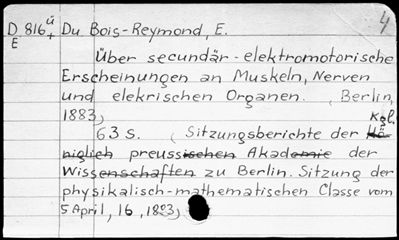 D 816 ü Du Bois-Reymond, E. 4
E +
Über secundär-elektromotorische
Erscheinungen an Muskeln, Nerven
und elekrischen Organen. (Berlin,
1883)
Kgl.
63 S. (Sitzungsberichte der Kö
niglich preussischen Akademie der
Wissenschaften zu Berlin. Sitzung der
physikalisch-mathematischen Classe vom
5 April, 16, 1883)